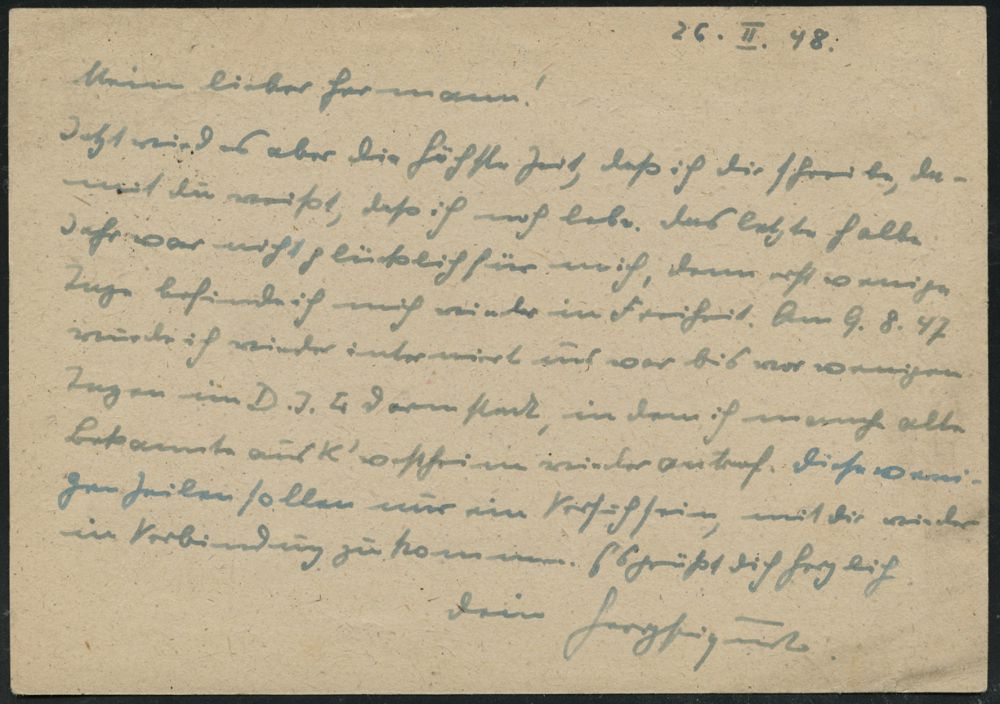 26. II. 48.
Mein lieber Hermann!
Jetzt wird es aber die höchste Zeit, daß ich dir schreibe, da-
mit du weißt, daß ich noch lebe. Das letzte halbe
Jahr war nicht glücklich für mich, denn erst wenige
Tage befinde ich mich wieder in Freiheit. Am 9. 8. 47
wurde ich wieder interniert und war bis vor wenigen
Tagen im D. J. L Darmstadt, in dem ich manche alte
Bekannte aus K' wieder antraf. Diese weni-
gen Zeilen sollen nur ein Versuch sein, mit dir wieder
in Verbindung zu kommen. Es grüßt dich herzlich
Dein